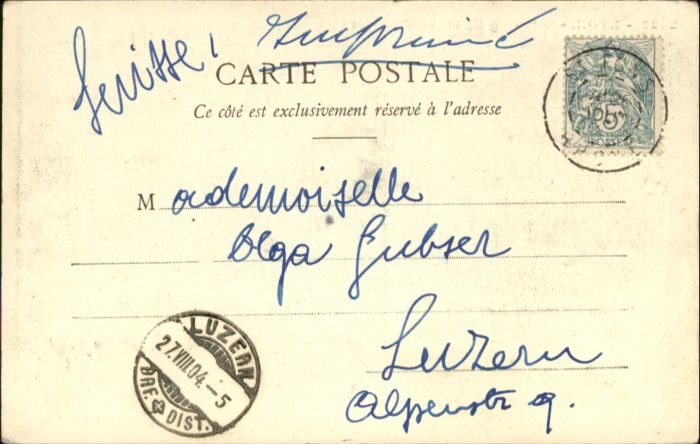 Suisse, Imprimé
CARTE POSTALE
Ce côté est exclusivement réservé à l'adresse
Mademoiselle
Olga Gubser
Luzern
Alpenstr 9.
5
POSTES
LUZERN
27.VIII.04.-5
BRF. DIST.